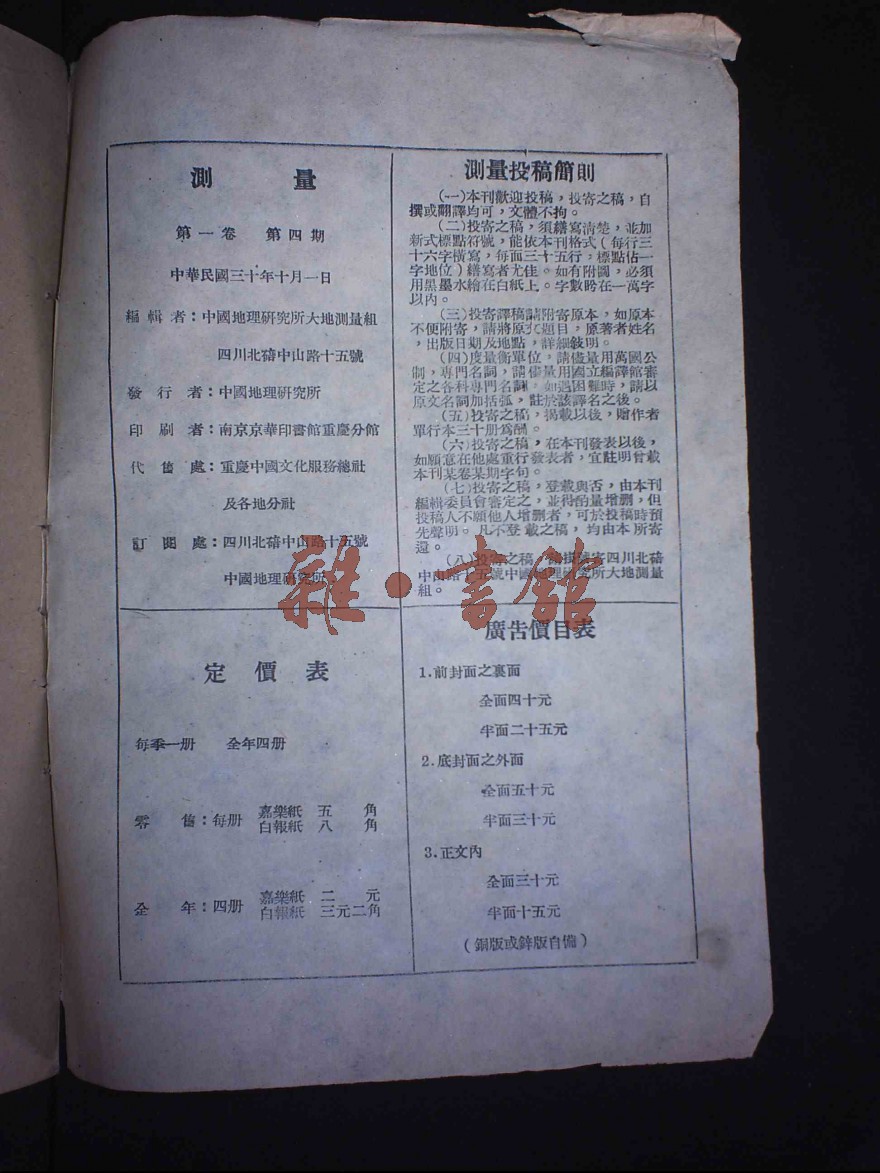 測量
第一卷 第四期
中華民國三十年十月一日
編輯者：中國地理研究所大地測量組
四川北碚中山路十五號
發行者：中國地理研究所
印刷者：南京京華印書館重慶分館
代售處：重慶中國文化服務總社
及各地分社
訂閱處：四川北碚中山路十五號
中國地理研究所
測量投稿簡則
(一)本刊歡迎投稿，投寄之稿，自
撰或翻譯均可，文體不拘。
(二)投寄之稿，須繕寫清楚，並加
新式標點符號，能依本刊格式(每行三
十六字橫寫，每面三十五行，標點佔一
字地位)繕寫者尤佳。如有附圖，必須
用黑墨水繪在白紙上。字數盼在一萬字
以內。
(三)投寄譯稿請附寄原本，如原本
不便附寄，請將原文題目，原著者姓名
，出版日期及地點，詳細敍明。
(四)度量衡單位，請儘量用萬國公
制，專門名詞，請儘量用國立編譯館審
定之各科專門名詞。如遇困難時，請以
原文名詞加括弧，註於該譯名之後。
(五)投寄之稿，揭載以後，贈作者
單行本三十册為酬。
(六)投寄之稿，在本刊發表以後，
如願意在他處重行發表者，宜註明曾載
本刊某卷某期字句。
(七)投寄之稿，登載與否，由本刊
編輯委員會審定之，並得酌量增删，但
投稿人不願他人增删者，可於投稿時預
先聲明。凡不登載之稿，均由本所寄
還。
(八)投寄之稿，請掛號寄四川北碚
中山路十五號中國地理研究所大地測量
組。
雜·書館
定價表
每季一册 全年四册
零售：每册 嘉樂紙 五角
白報紙 八角
全年：四册 嘉樂紙 二元
白報紙 三元二角
廣告價目表
1.前封面之裏面
全面四十元
半面二十五元
2.底封面之外面
全面五十元
半面三十元
3.正文內
全面三十元
半面十五元
(銅版或鋅版自備)